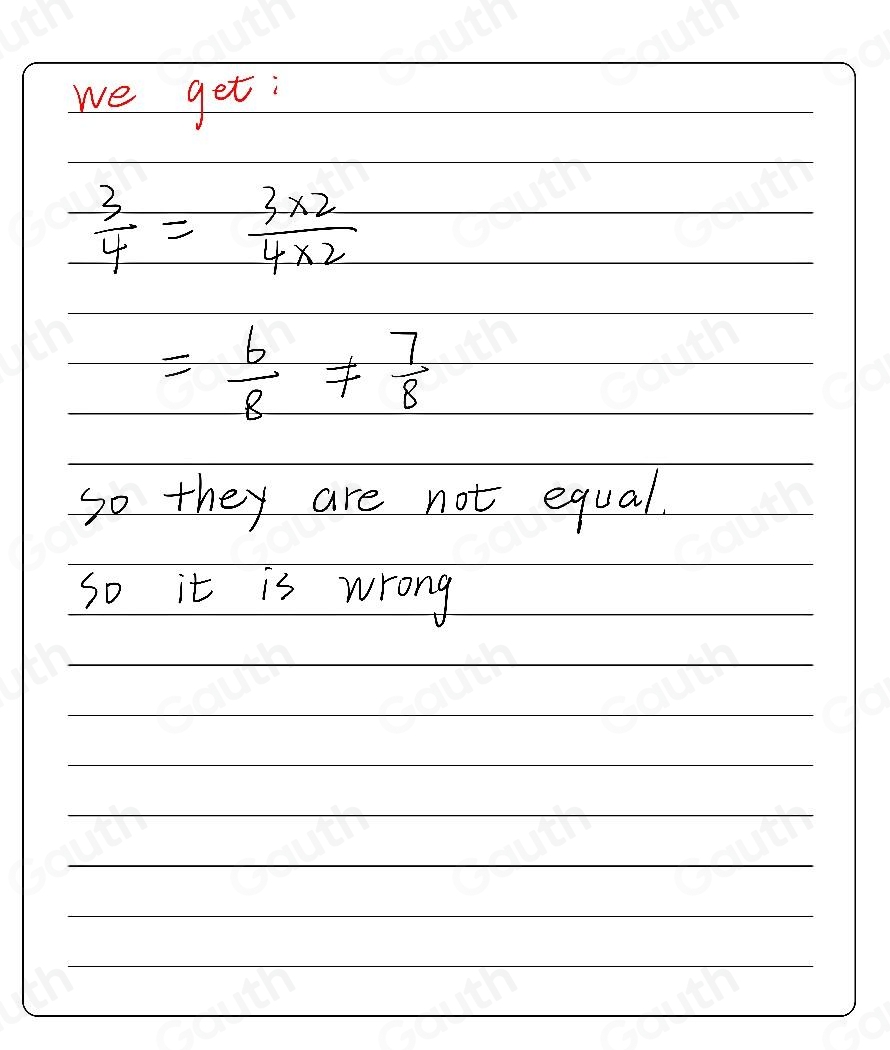 we get:
3/4 = 3×2/4×2
= 6/8 ≠ 7/8
so they are not equal.
so it is wrong
Gauth